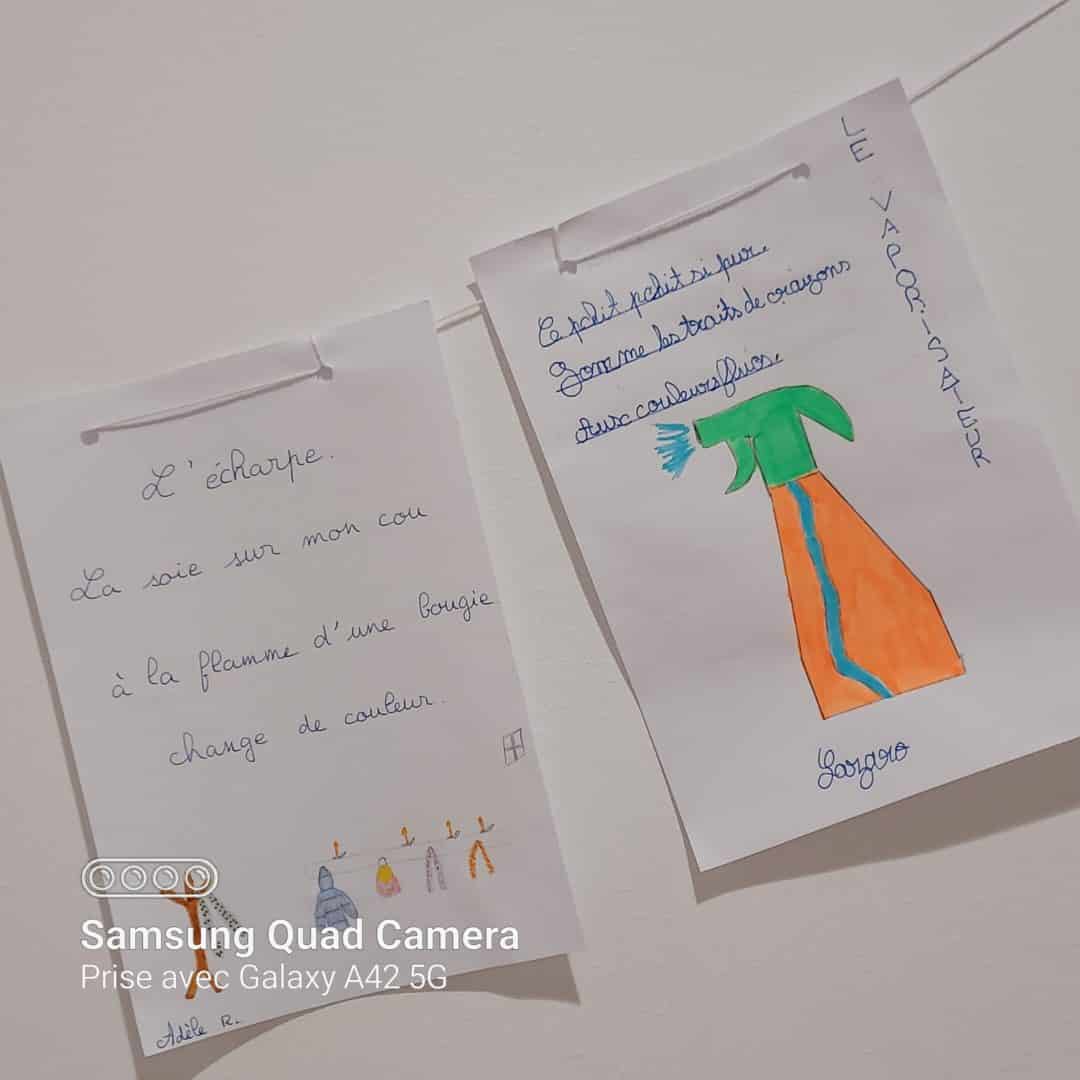 L'écharpe.
La soie sur mon cou
à la flamme d'une bougie
change de couleur.
Adèle R.
LE VAPORISATEUR
Ce pchit pchit si pur.
Comme les traits de crayons
Aux couleurs fluos.
Lazaro
Samsung Quad Camera
Prise avec Galaxy A42 5G